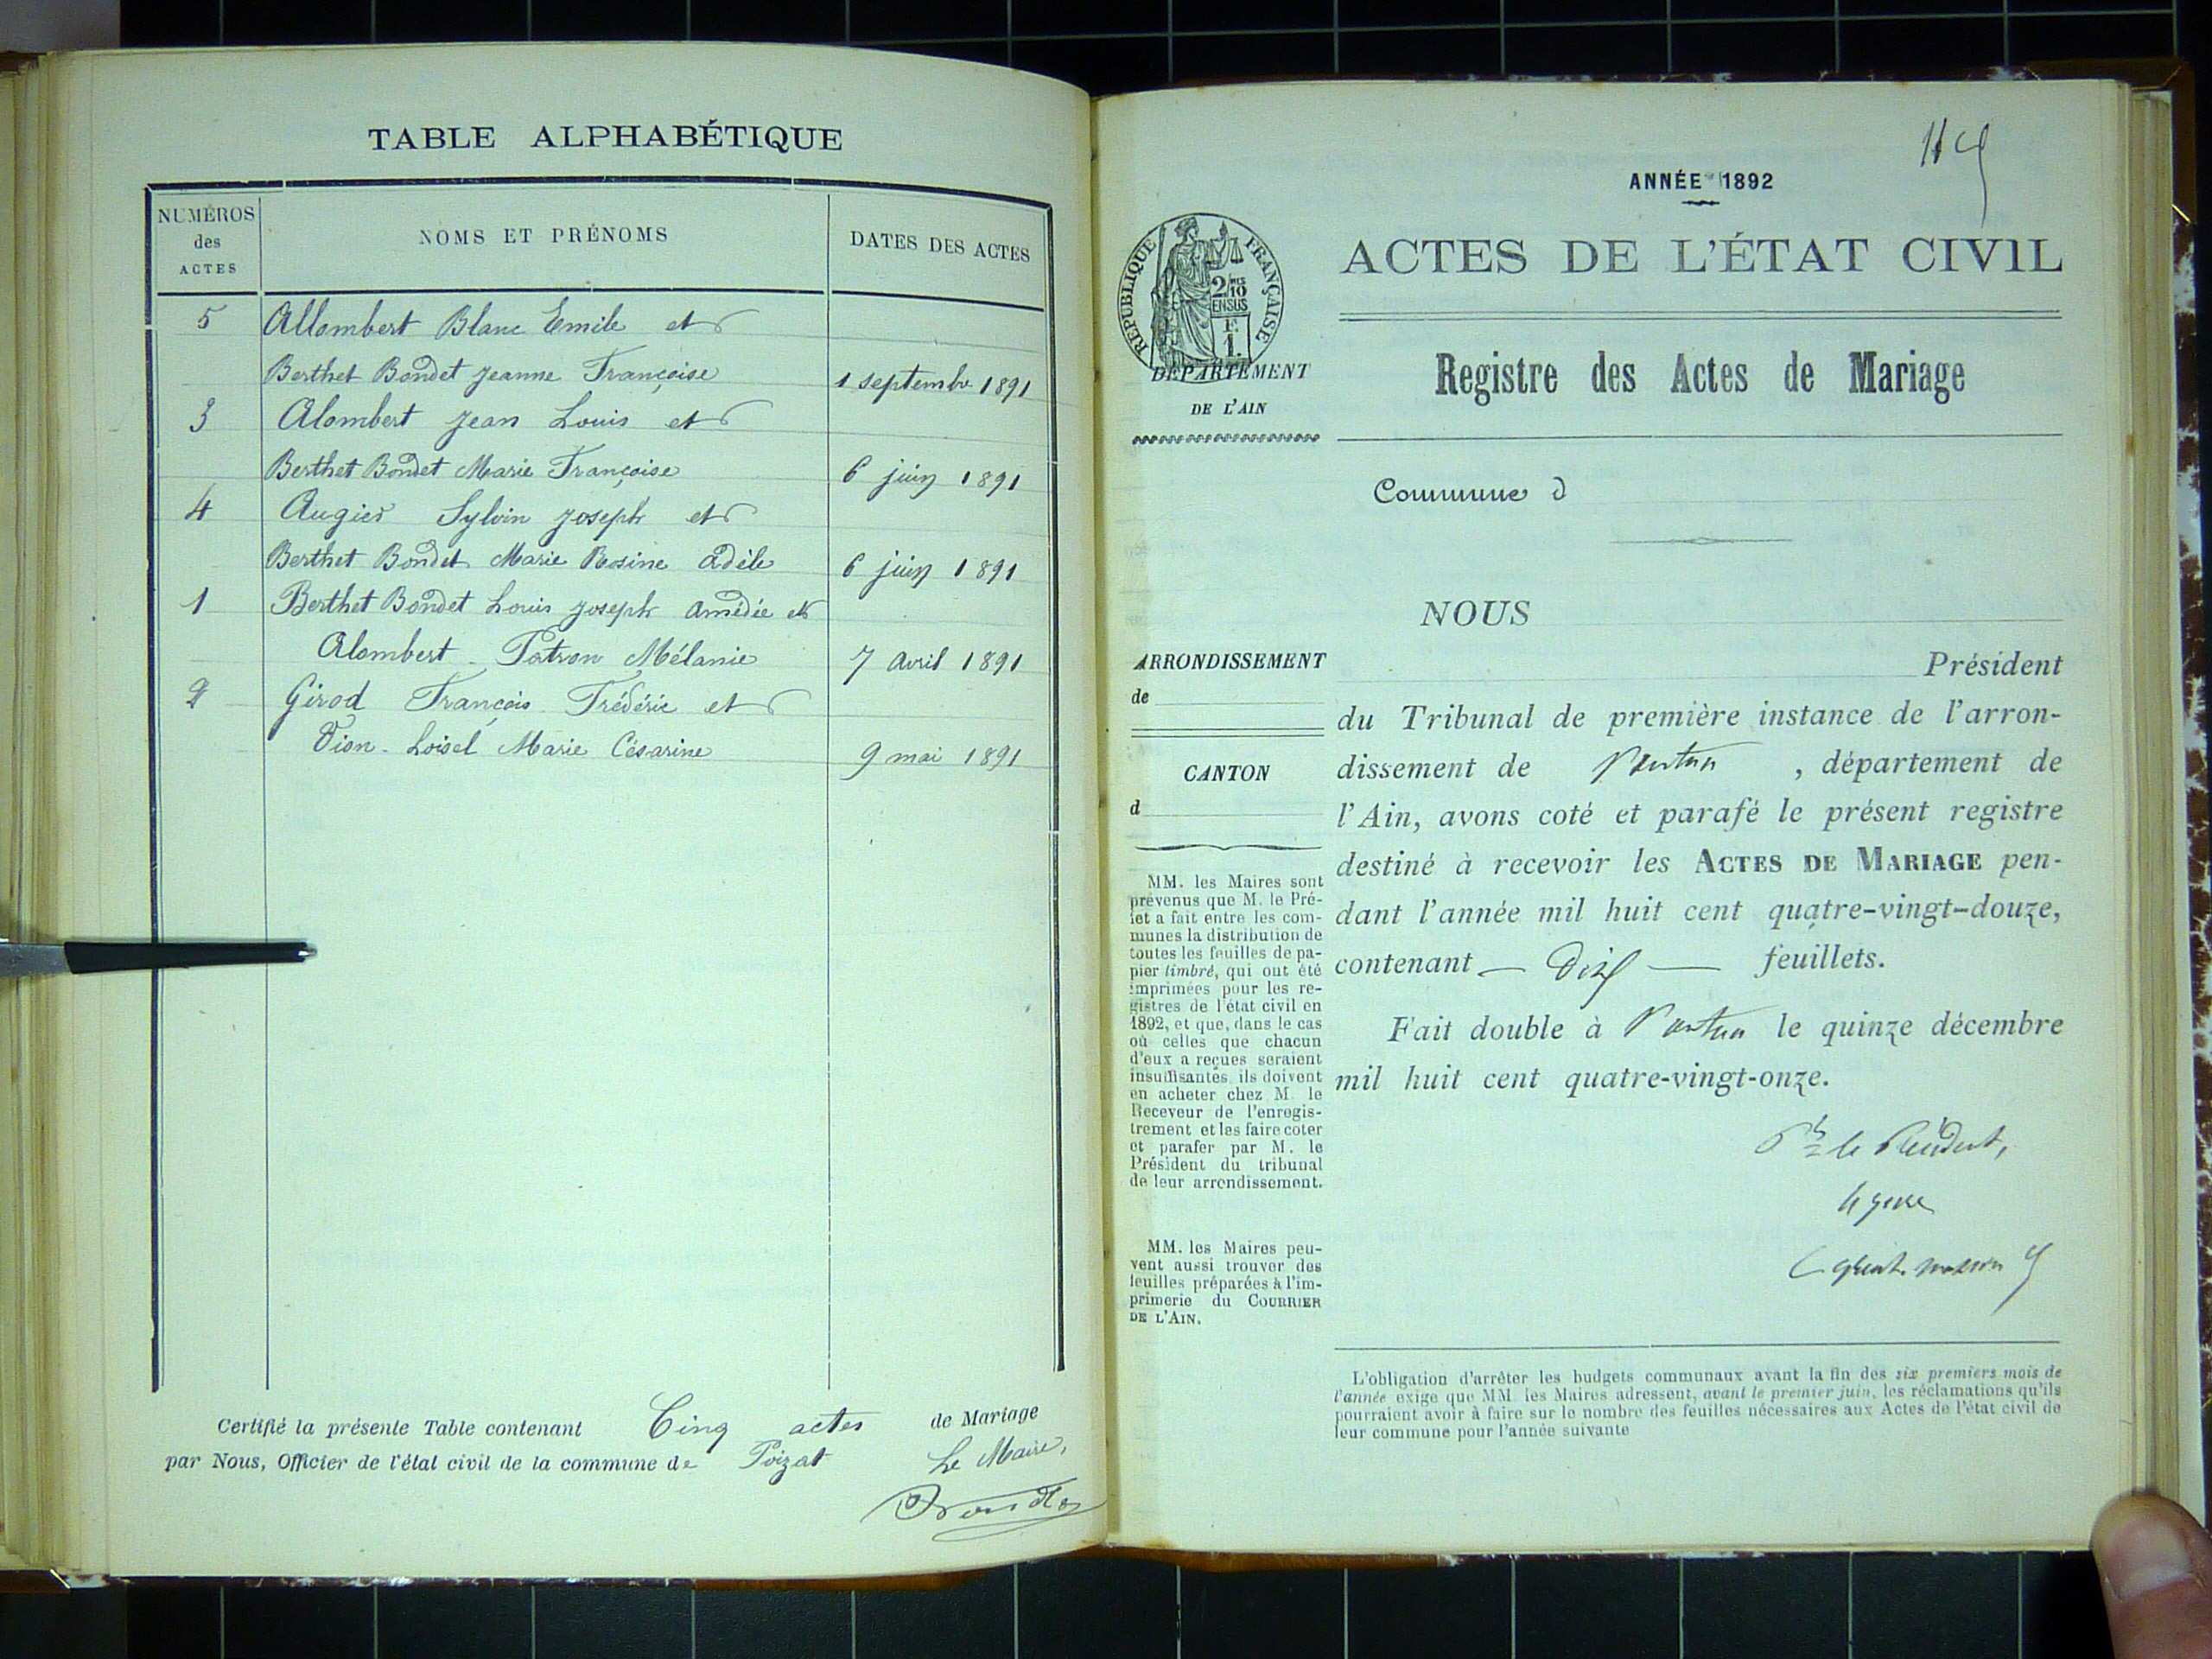 TABLE ALPHABÉTIQUE
NUMÉROS
des
ACTES
NOMS ET PRÉNOMS
DATES DES ACTES
5 Allombert Blanc Emile et
Berthet Bondet Jeanne Françoise 1 septembre 1891
3 Alombert Jean Louis et
Berthet Bondet Marie Françoise 6 juin 1891
4 Augier Sylvin Joseph et
Berthet Bondet Marie Rosine Adèle 6 juin 1891
1 Berthet Bondet Louis Joseph Amédée et
Alombert - Patron Mélanie 7 Avril 1891
2 Girod François Frédéric et
Vion - Loisel Marie Césarine 9 mai 1891
Certifié la présente Table contenant Cinq actes de Mariage
par Nous, Officier de l'état civil de la commune de Poizat Le Maire,
ANNÉE 1892
RÉPUBLIQUE FRANÇAISE
2/10
EN SUS
F.
1.
ACTES DE L'ÉTAT CIVIL
DÉPARTEMENT
DE L'AIN
Registre des Actes de Mariage
Commune d
NOUS
ARRONDISSEMENT
de
CANTON
d
MM. les Maires sont
prévenus que M. le Pré-
fet a fait entre les com-
munes la distribution de
toutes les feuilles de pa-
pier timbré, qui ont été
imprimées pour les re-
gistres de l'état civil en
1892, et que, dans le cas
où celles que chacun
d'eux a reçues seraient
insuffisantes, ils doivent
en acheter chez M. le
Receveur de l'enregis-
trement et les faire coter
et parafer par M. le
Président du tribunal
de leur arrondissement.
MM. les Maires peu-
vent aussi trouver des
feuilles préparées à l'im-
primerie du COURRIER
DE L'AIN.
Président
du Tribunal de première instance de l'arron-
dissement de Nantua, département de
l'Ain, avons coté et parafé le présent registre
destiné à recevoir les ACTES DE MARIAGE pen-
dant l'année mil huit cent quatre-vingt-douze,
contenant — Dix — feuillets.
Fait double à Nantua le quinze décembre
mil huit cent quatre-vingt-onze.
Pr le Président,
le juge
L'obligation d'arrêter les budgets communaux avant la fin des six premiers mois de
l'année exige que MM. les Maires adressent, avant le premier juin, les réclamations qu'ils
pourraient avoir à faire sur le nombre des feuilles nécessaires aux Actes de l'état civil de
leur commune pour l'année suivante